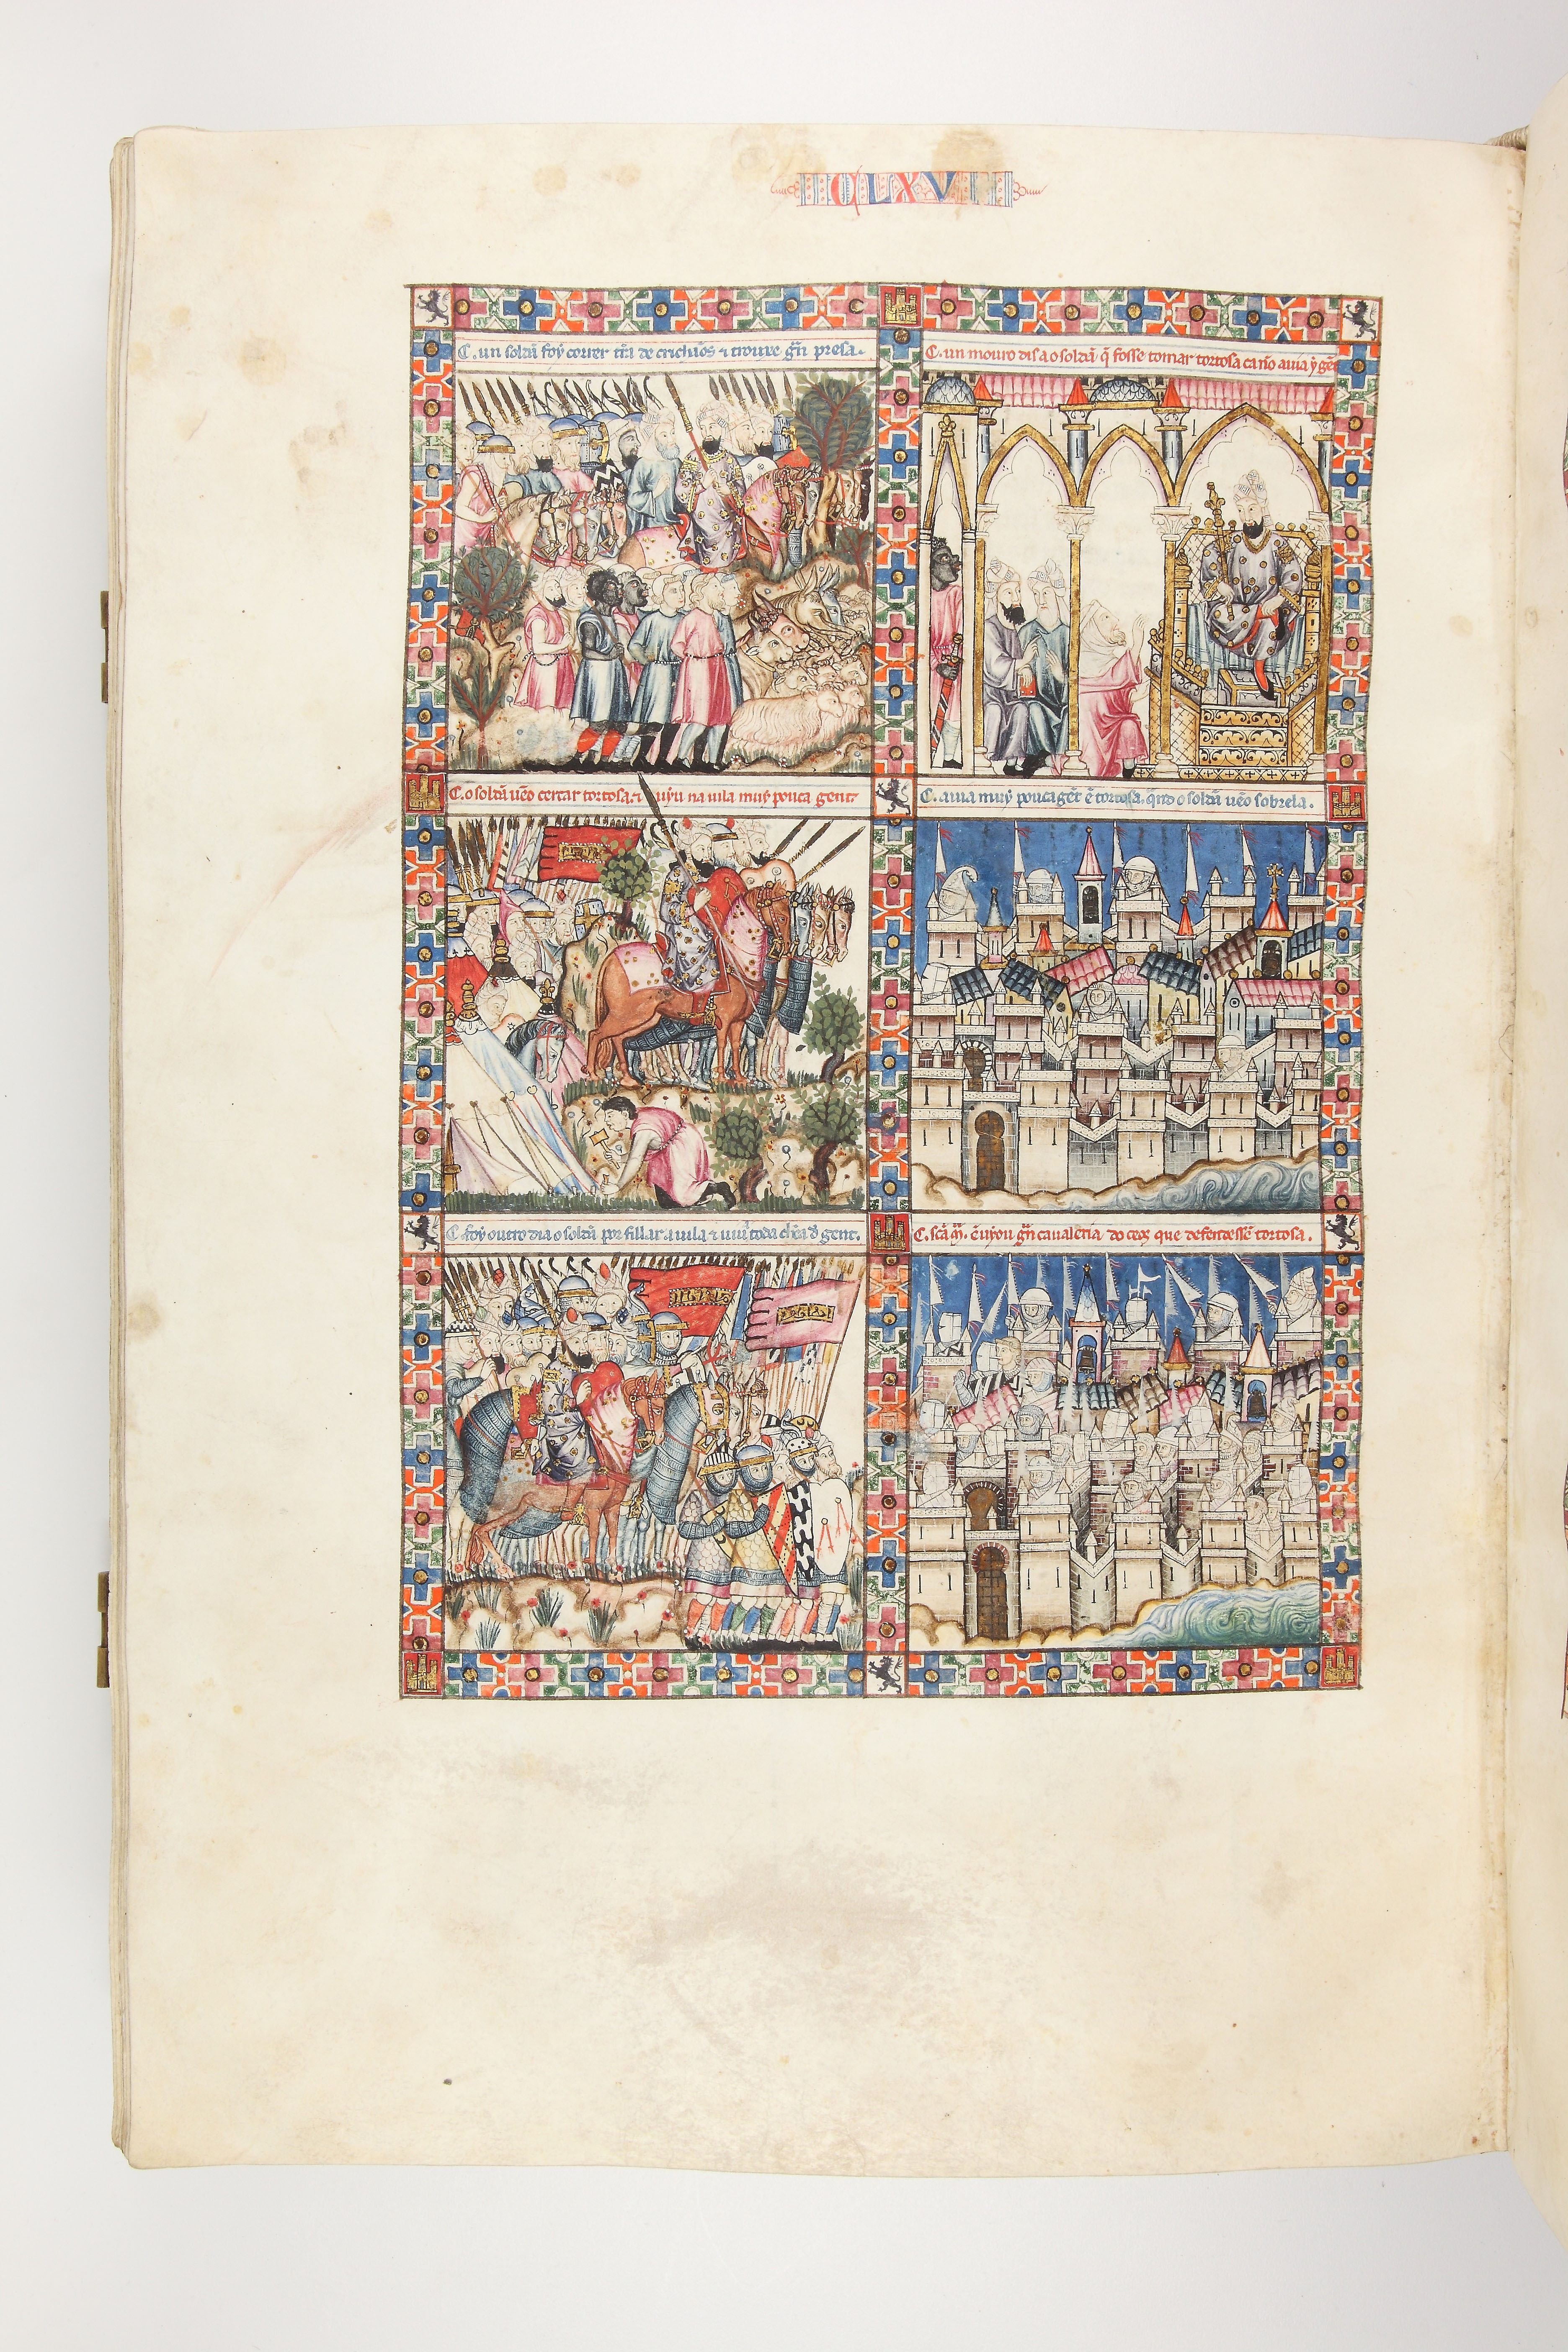 CLXV
C. un soldã foy correr trã de crischãos ⁊ trouxe grã presa.
C. un mouro disa o soldã q̃ fosse tomar tortosa ca nõ auia y gẽt
C. o soldã uẽo cercar tortosa. ⁊ uyu na uila muy pouca gent.
C. auia muy pouca gẽt ẽ tortosa. qñdo o soldã uẽo sobrela.
C. foy outro dia o soldã por fillar a uila ⁊ uiu a toda chẽa d gent.
C. scã mã. ẽuyou grã caualeria do ceo que defendessẽ tortosa.